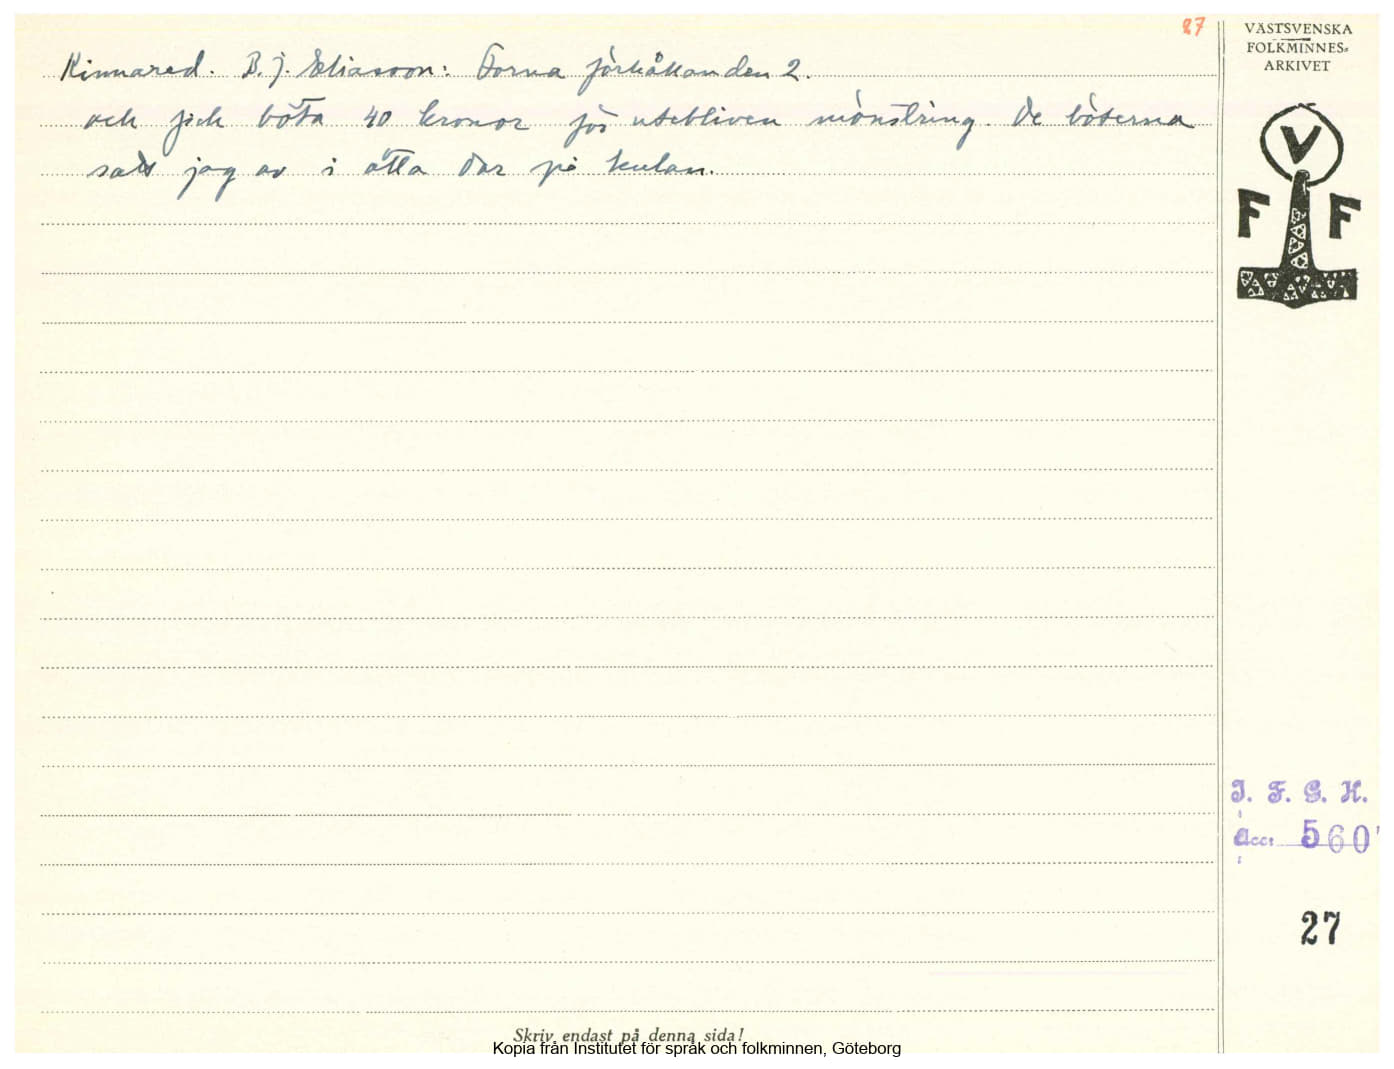 27
VÄSTSVENSKA
FOLKMINNES-
ARKIVET
Kinnared. B. J. Eliasson: Forna förhållanden 2.
och fick böta 40 kronor för utebliven mönstring. De böterna
satt jag av i åtta dar på kulan.
V
F F
I. F. G. H.
Acc: 560
27
Skriv endast på denna sida!
Kopia från Institutet för språk och folkminnen, Göteborg